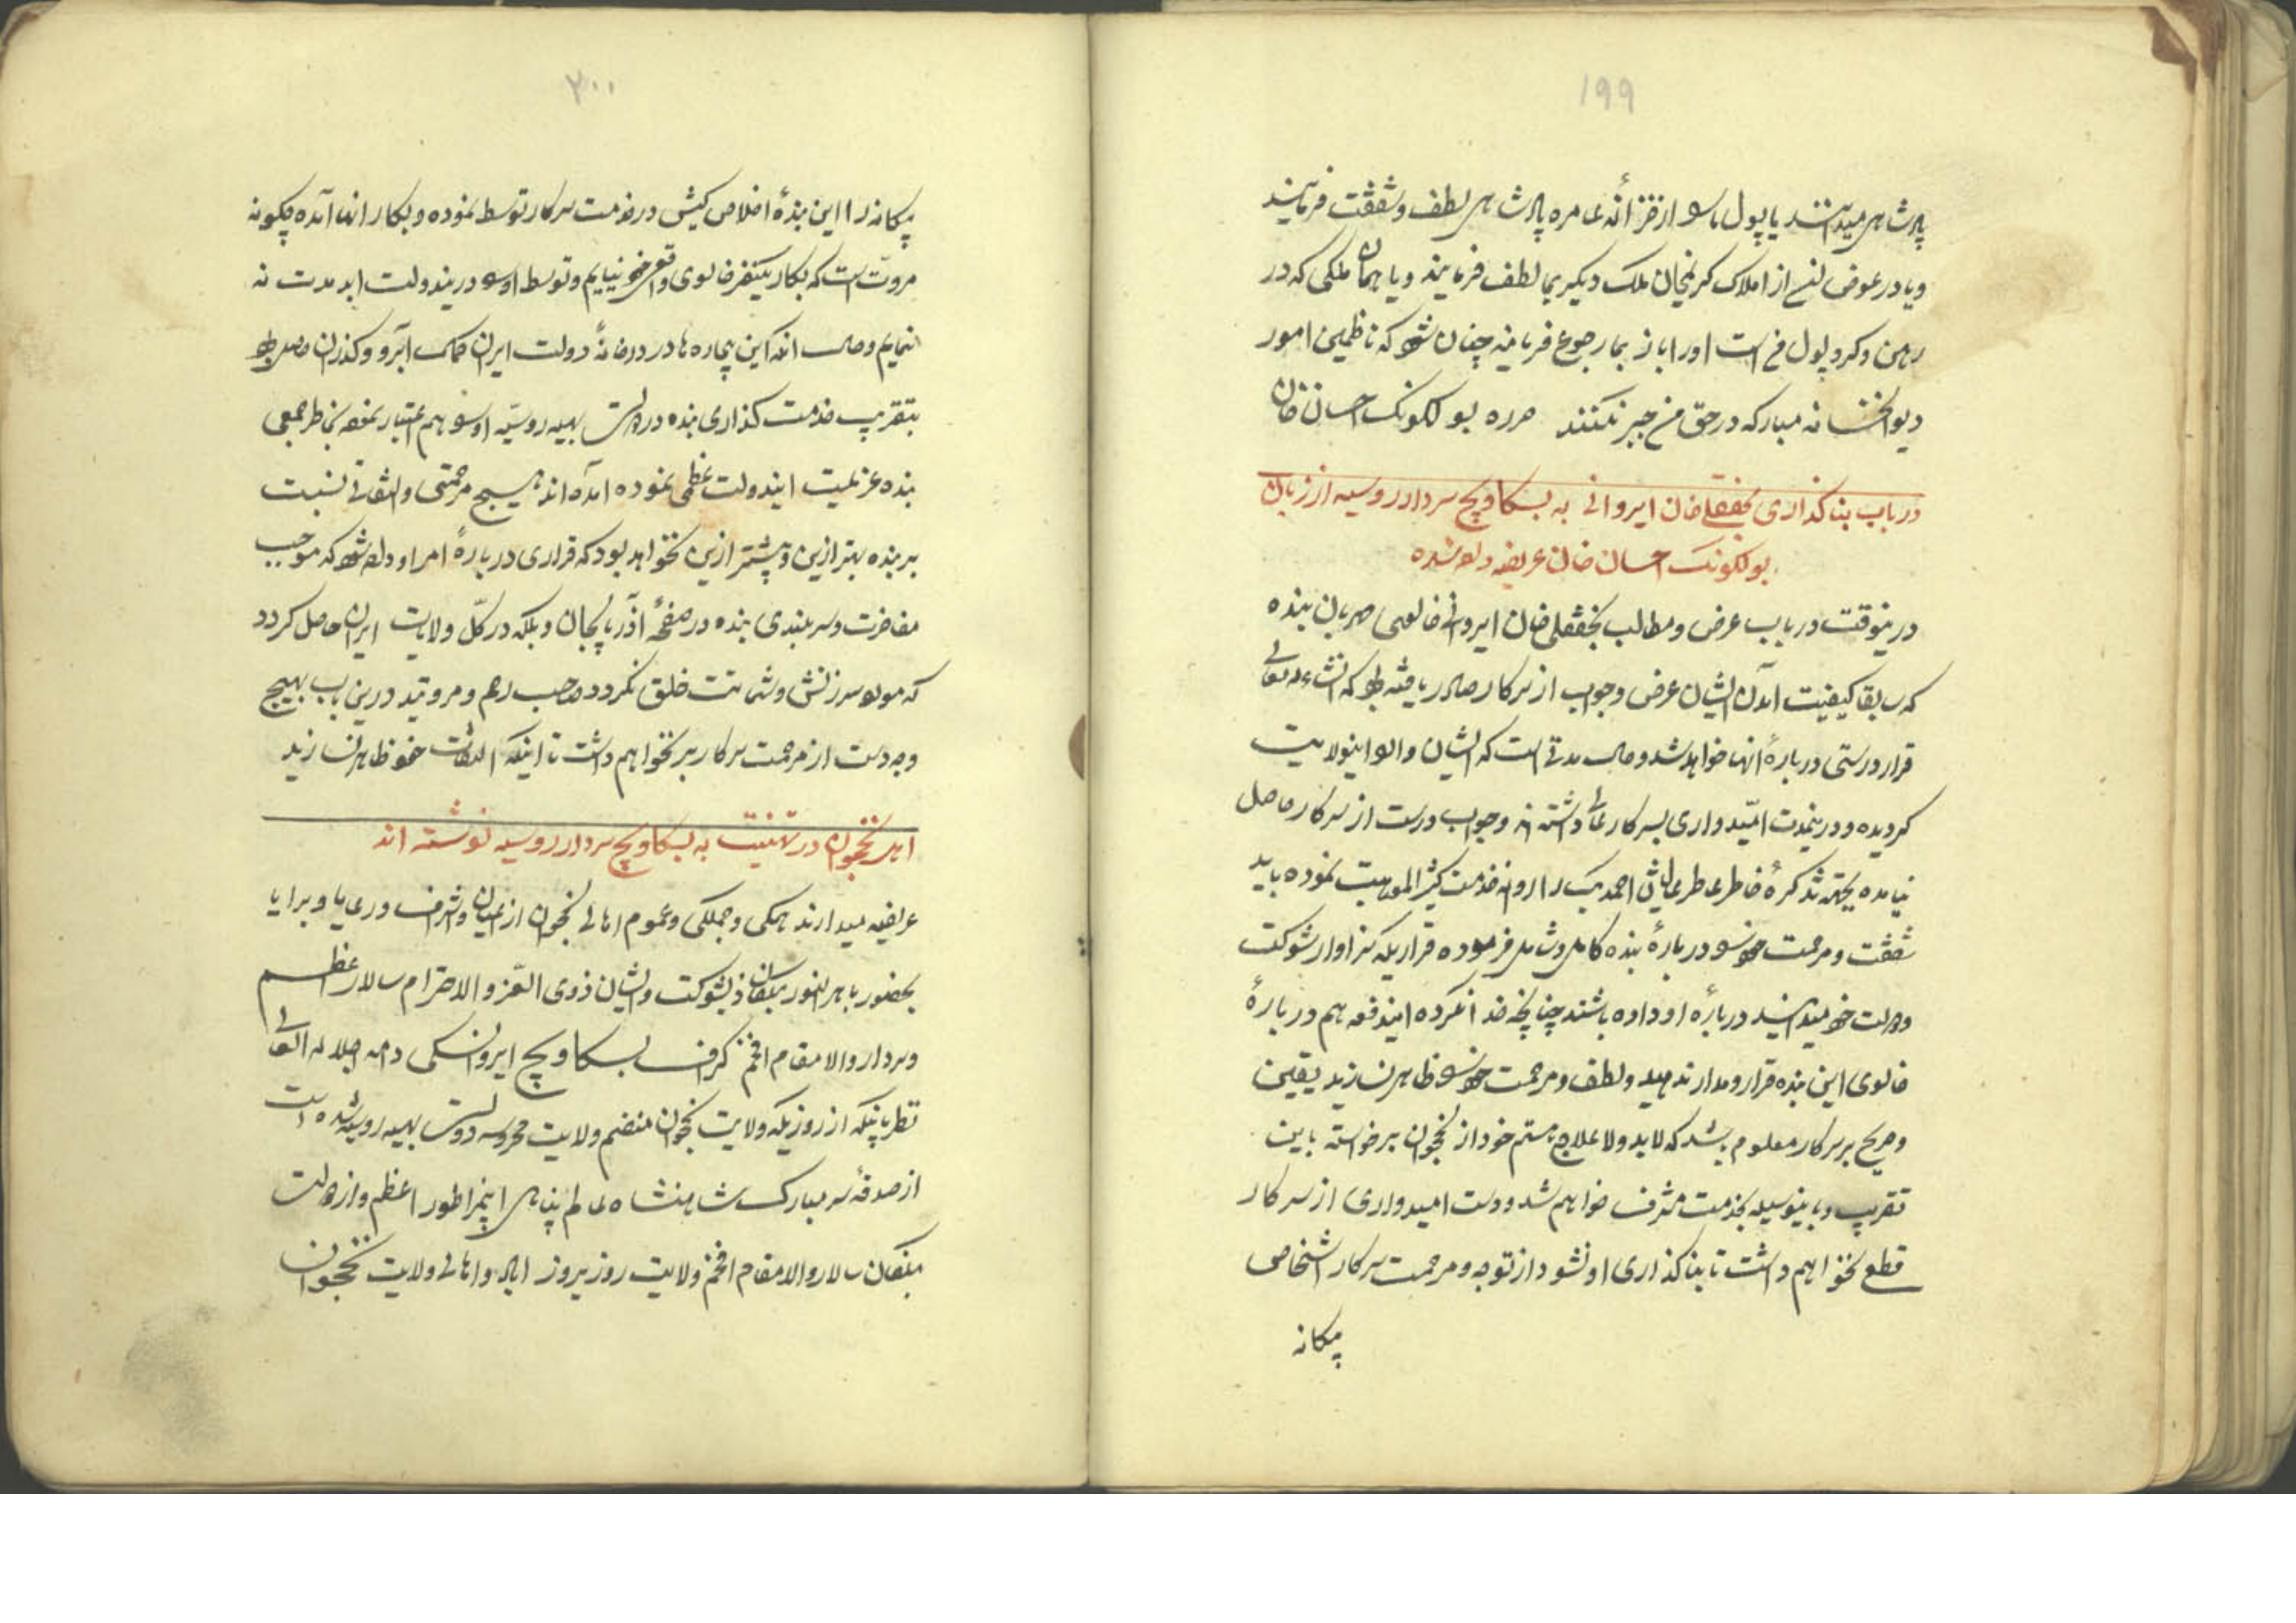 ۱۹۹
پادشاهی میدانند یا پول ما را از خزانه عامره پادشاهی لطف و شفقت فرمایند
و یا در عوض از املاک کرنجان ملک دیگر بما لطف فرمایند و یا همان ملکی که در
رهن و کرو پول من است اورا باز بما رجوع فرمایند چنان شود که ناظمین امور
دیوانخانه مبارکه در حق من جبر نکنند حرره بولکونک احسان خان
در باب بنا کذاری نجفقلیخان ایروانی به بسکاویچ سردار روسیه از زبان
بولکونک احسان خان عریضه داده شده
درینوقت در باب عرض و مطالب نجفقلی خان ایروانی خالوی مهربان بنده
که سابقا کیفیت آمدن ایشان عرض و جواب از سرکار صادر یافته بود که انشاءالله تعالی
قرار درستی درباره آنها خواهد شد و حال مدتی است که ایشان وارد اینولایت
کردیده و درینمدت امیدواری بسرکار عالی داشته اند و جواب درست از سرکار حاصل
نیامده بجهته تذکره خاطر عاطر عالیشان احمد بک را روانه خدمت کثیرالموهبت نموده باید
شفقت و مرحمت خود را درباره بنده کامل و شامل فرموده قراریکه سزاوار شوکت
و دولت خود میدانید درباره او داده باشند چنانچه خدا نکرده ایندفعه هم درباره
خالوی این بنده قرار و مدار ندهید و لطف و مرحمت خود را ظاهر نسازید یقین
و صریح بر سرکار معلوم باشد که لابد و لاعلاج منهم خود از نخجوان برخواسته باین
تقریب و باینوسیله بخدمت مشرف خواهم شد و دست امیدواری از سرکار
قطع نخواهم داشت تا بنا کذاری او نشود از توجه و مرحمت سرکار اشخاص
بیکانه
۲۰۰
بیکانه را این بنده اخلاص کیش در خدمت سرکار توسط نموده و بکار آنها آمده چکونه
مروت است که بکار یکنفر خالوی واقعی خود نیایم و توسط او را در یندولت ابد مدت نه
نمایم و حال آنکه این بیچاره ها در درخانه دولت ایران کمال آبرو و کذران حاصل بود
بتقریب خدمت کذاری بنده در دولت بهیه روسیه او را هم اعتبار نموده بخاطر جمعی
بنده عزیمت ایندولت عظمی نموده آمده اند هیچ مرحمتی و التفاتی نسبت
بر بنده بهتر ازین و بیشتر ازین نخواهد بود که قراری درباره امر او داده شود که موجب
مفاخرت و سربلندی بنده در صفحه آذربایجان و بلکه در کل ولایات ایران حاصل کردد
که مورد سرزنش و شماتت خلق نکردد صاحب رحم و مروتید درین باب بهیچ
وجه دست از مرحمت سرکار بر نخواهم داشت تا اینکه التفات خود ظاهر نسازید
اهل نخجوان در تهنیت به بسکاویچ سردار روسیه نوشته اند
عریضه میدارند همکی و جملکی و عموم اهالی نخجوان از اعیان و اشراف و رعایا و برایا
بحضور باهرالنور بندکان ذیشوکت والاشان ذوی العز و الاحترام سالار اعظم
و سردار والا مقام افخم کراف بسکاویچ ایروانسکی دام اجلاله العالی
نظر باینکه از روزیکه ولایت نخجوان منضم ولایت محروسه دولت بهیه روسیه شده است
از صدقه سر مبارک شاهنشاه عالم پناهی ایمپراطور اعظم و از دولت
بندکان سالار والا مقام افخم ولایت روز بروز آباد و اهالی ولایت نخجوان